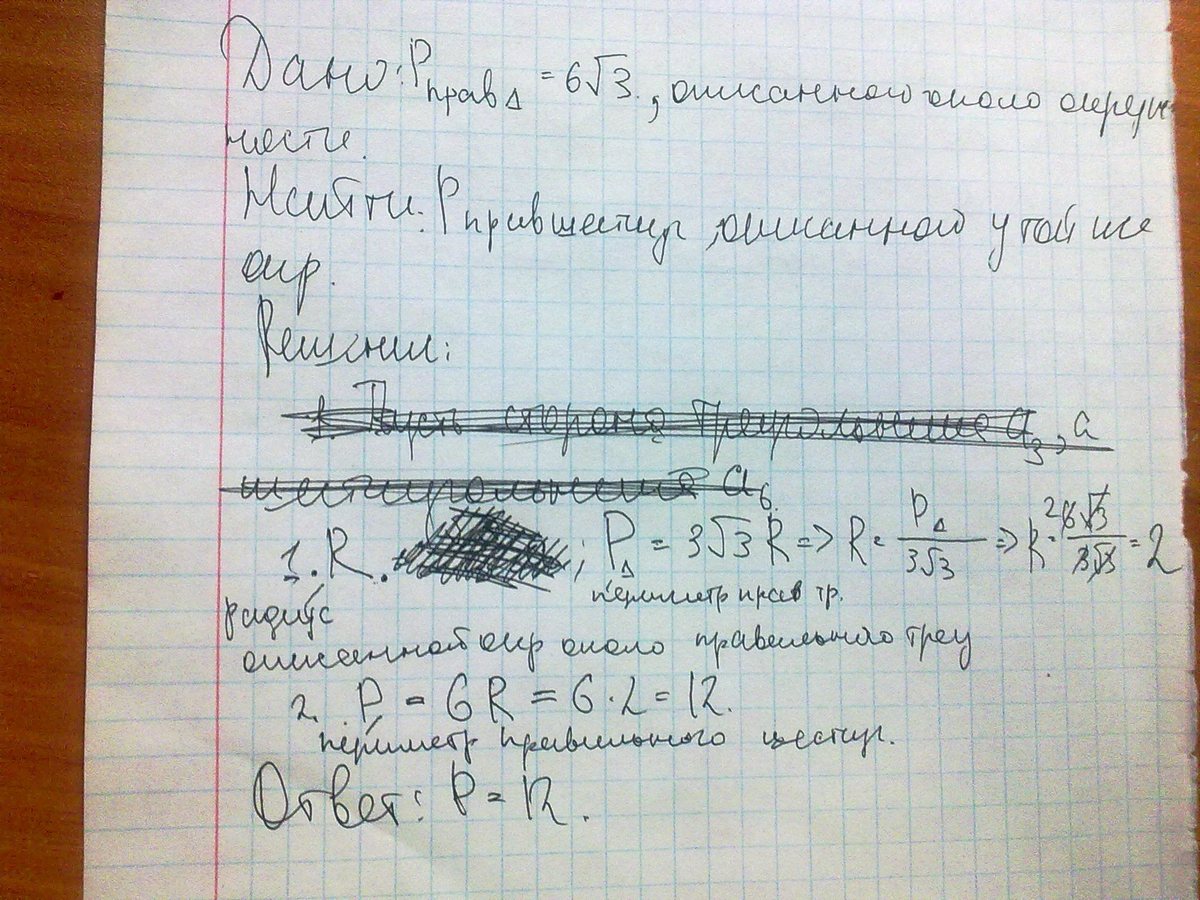 Дано: P прав Δ = 6√3, описанного около окруж
ности.
Найти: P прав шестиуг, описанного у той же
окр.
Решение:
1. Пусть сторона треугольника a₃, а
шестиугольника a₆
1. R. ; P Δ = 3√3 R => R = P Δ / 3√3 => R = 2 6√3 / 3√3 = 2
радиус периметр прав тр.
описанной окр около правильного треу
2. P = 6R = 6·2 = 12.
периметр правильного шестиуг.
Ответ: P = 12.